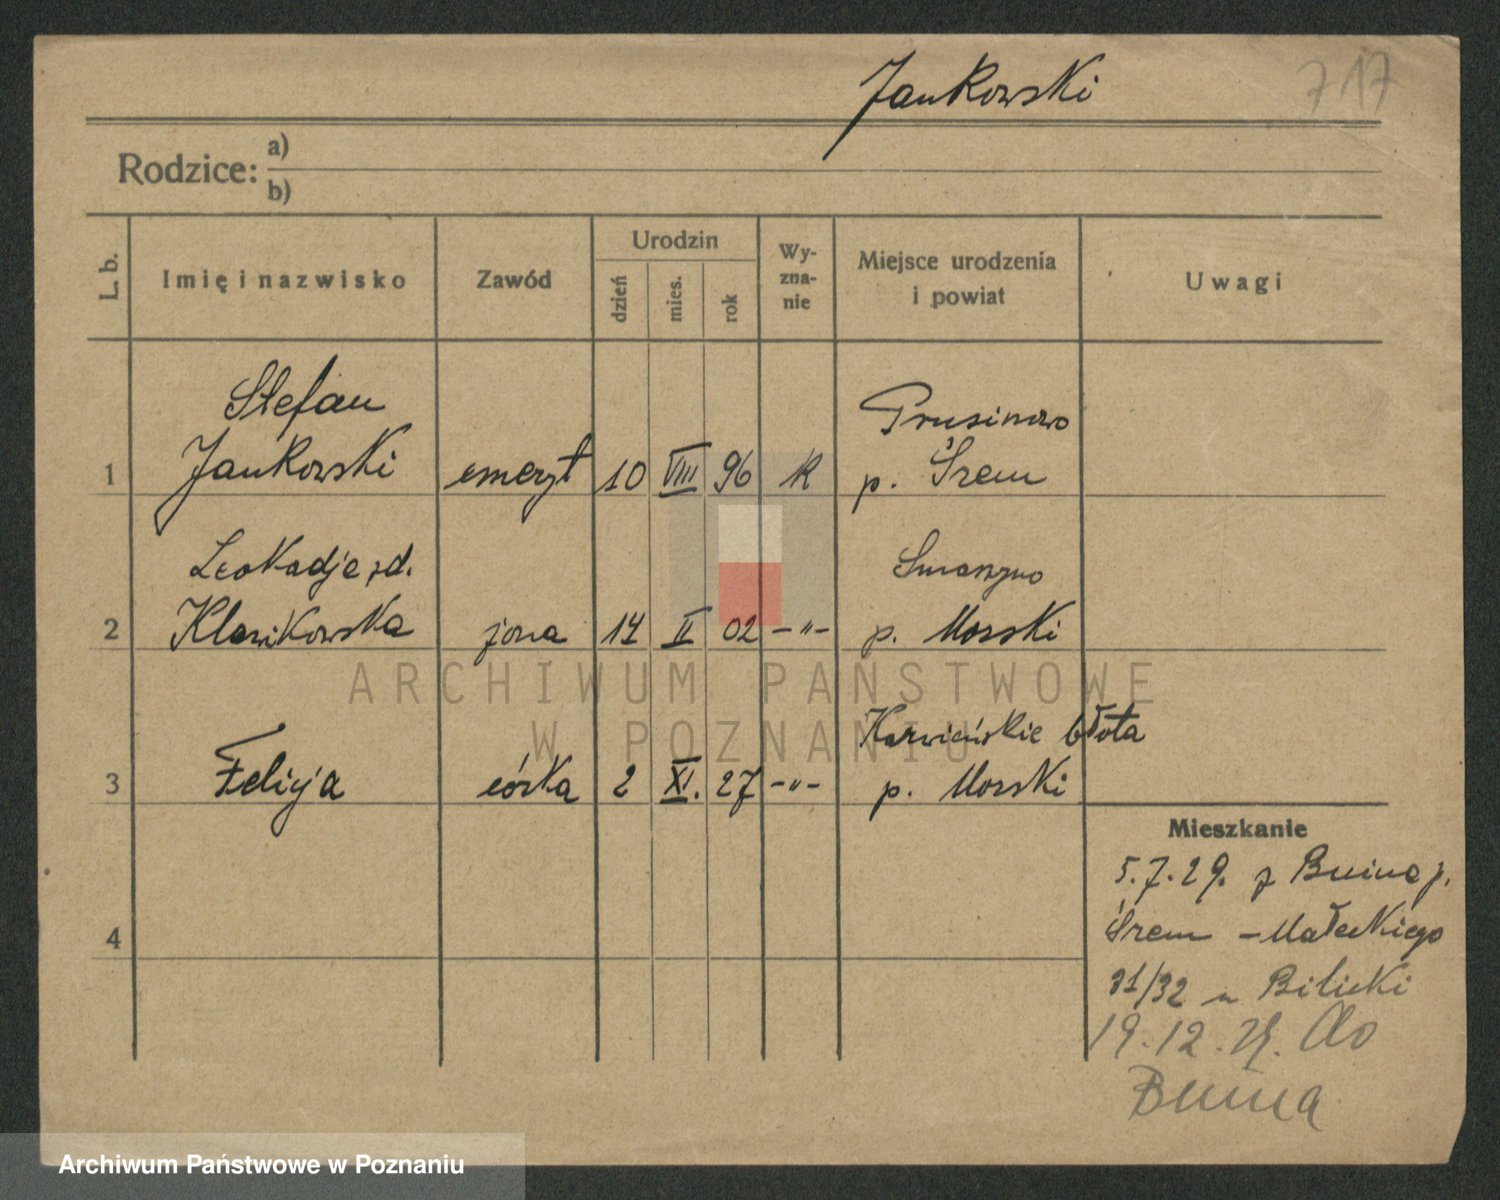 Jankowski
717
Rodzice: a)
b)
L. b.
Imię i nazwisko
Zawód
Urodzin
dzień
mies.
rok
Wy-
zna-
nie
Miejsce urodzenia
i powiat
Uwagi
Stefan
Prusinowo
1 Jankowski emeryt 10 VIII 96 k p. Śrem
Leokadja zd.
2 żona 14 II 02 -"- p. Morski
Karwieńskie błota
3 Felicja córka 2 XI. 27 -"- p. Morski
Mieszkanie
5.7.29. z Bnina p.
4
Śrem - Małeckiego
31/32 u Bilicki
19.12.29. do
Bnina
ARCHIWUM PAŃSTWOWE
W POZNANIU
Archiwum Państwowe w Poznaniu